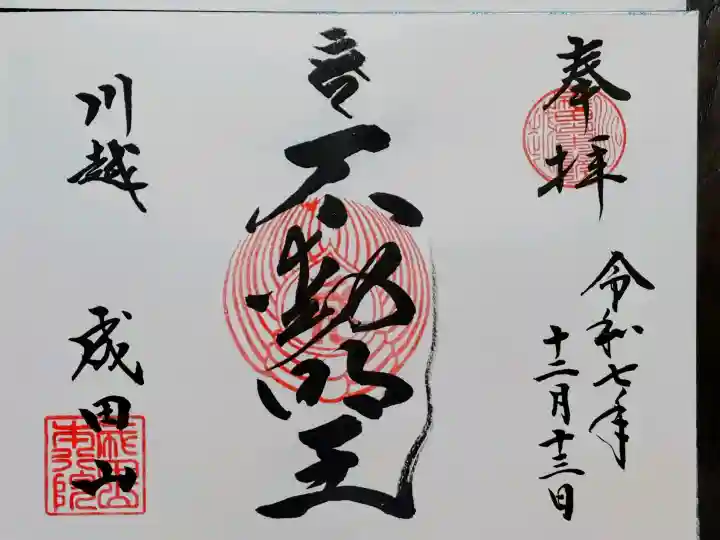 奉拝
令和七年
十二月十三日
不動明王
川越
成田山